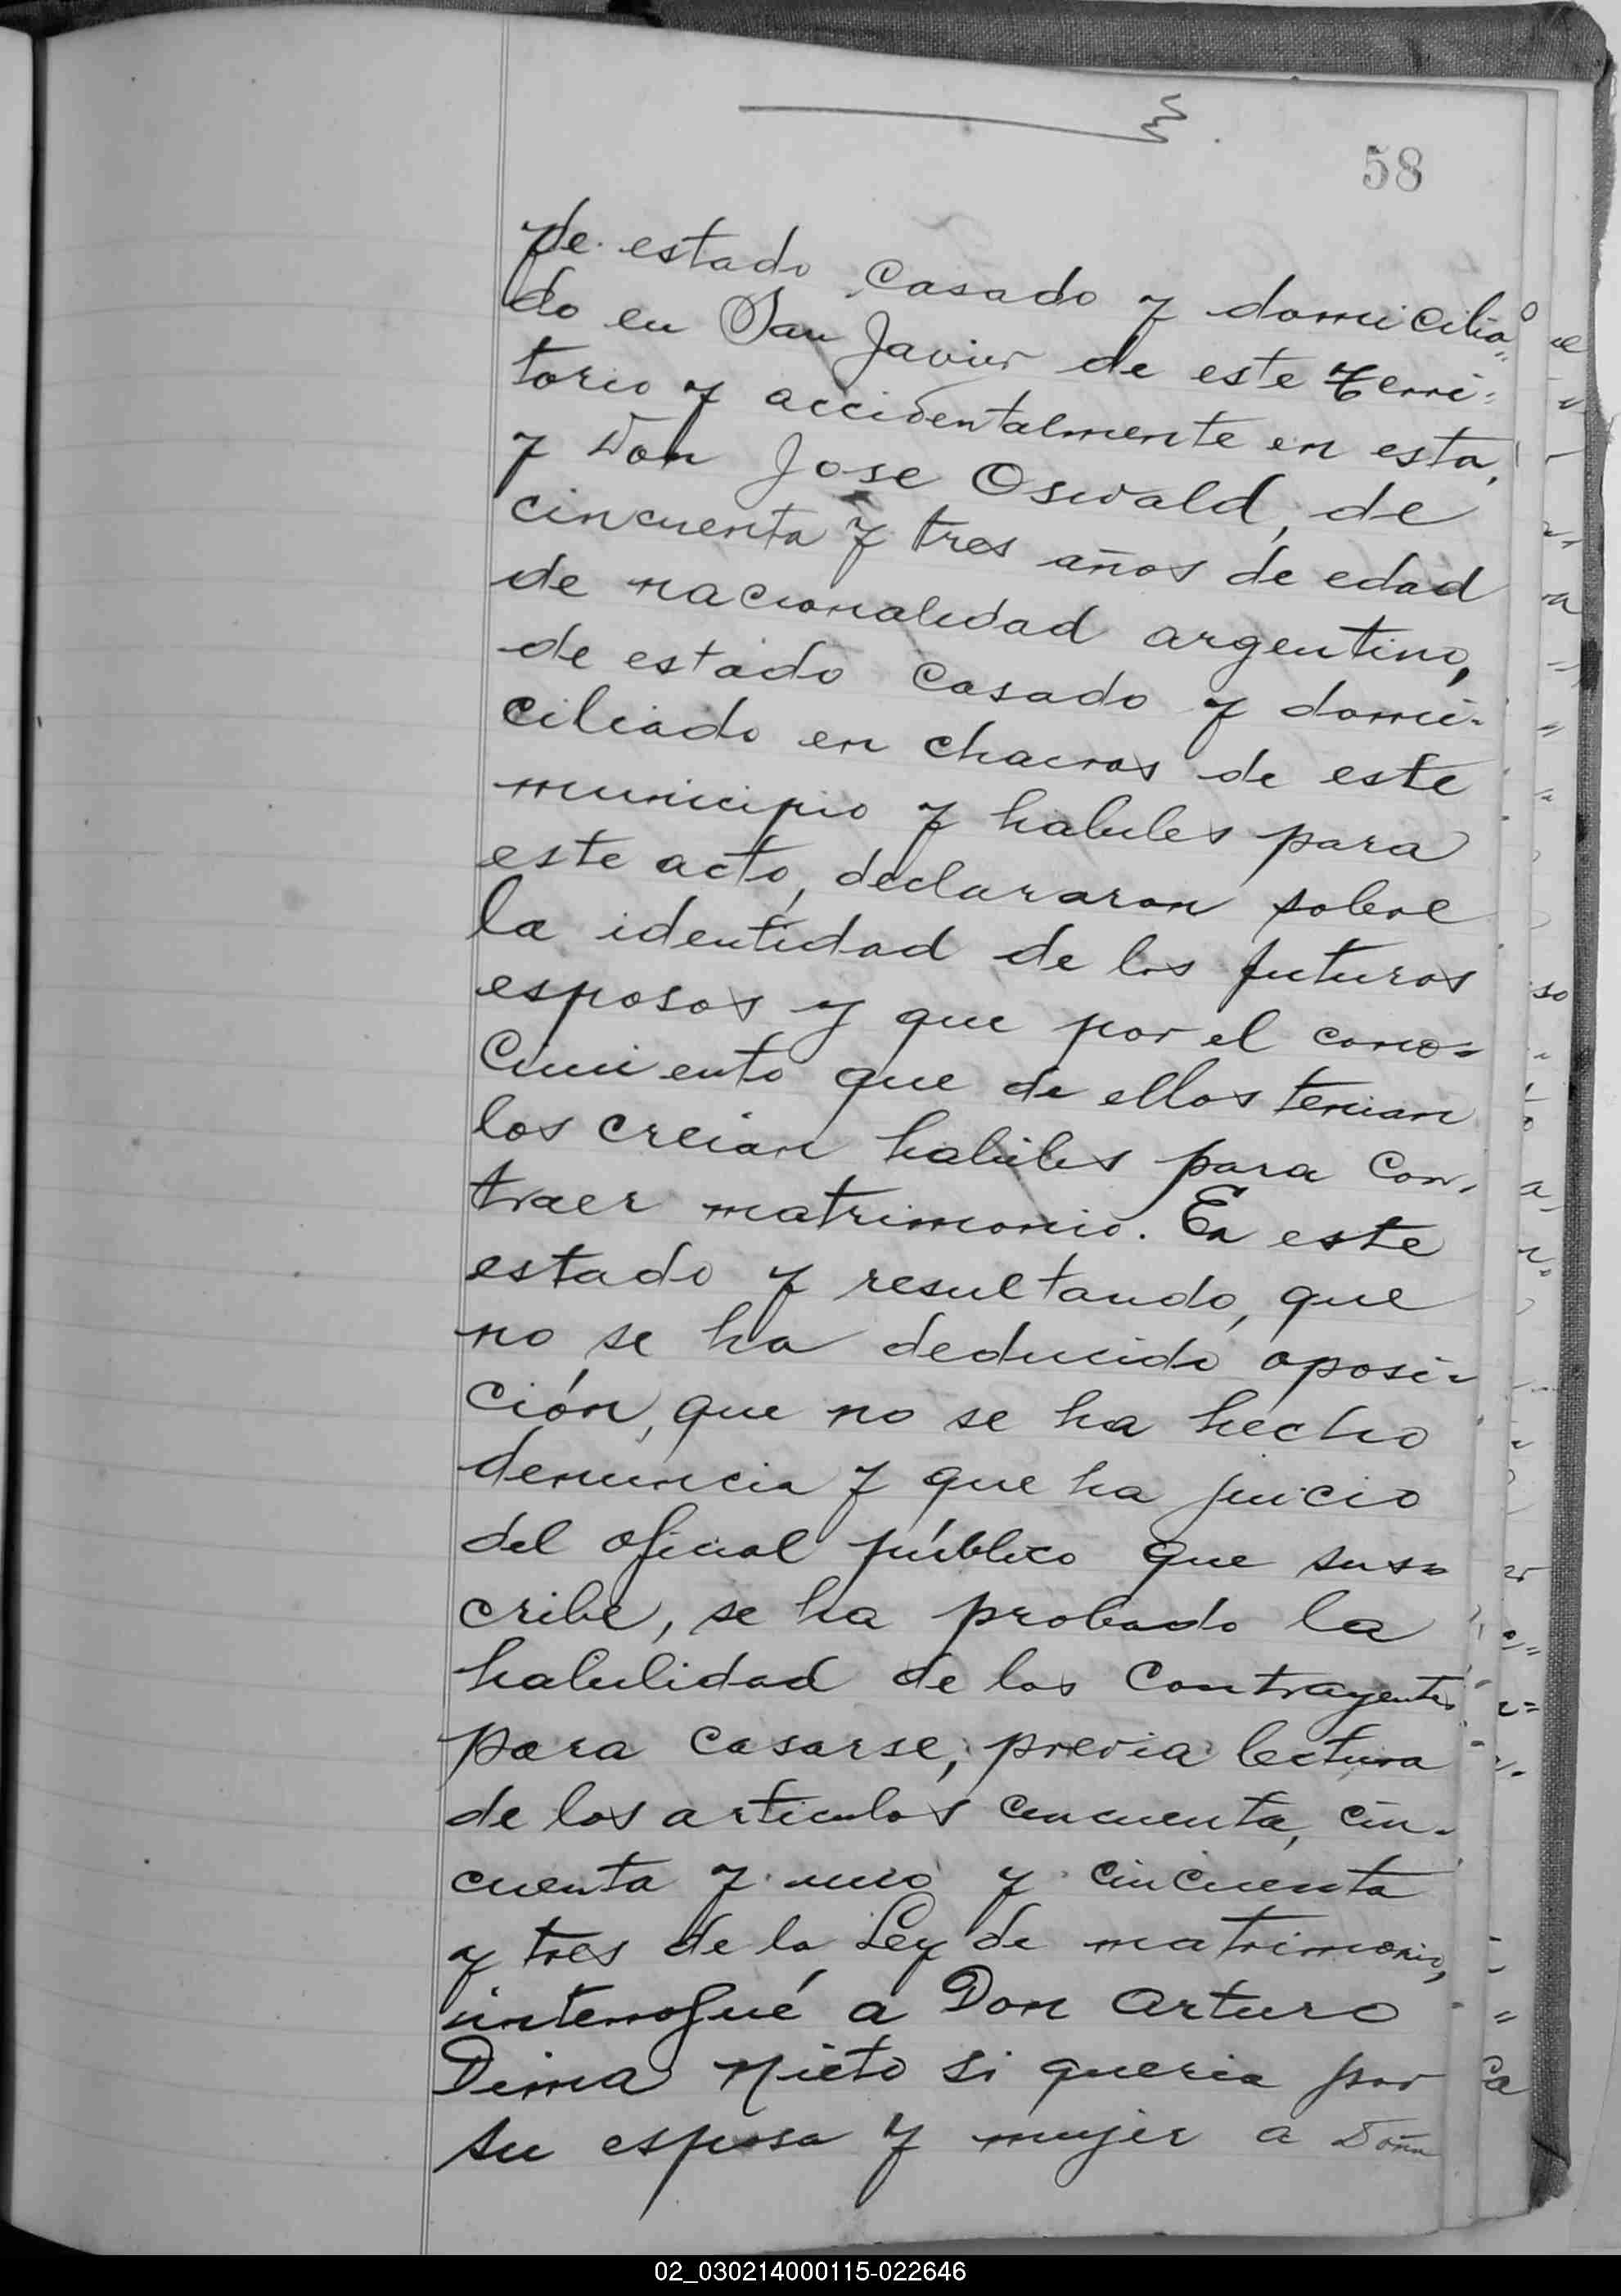 58
de estado casado y domicilia=
do en San Javier de este terri=
torio y accidentalmente en esta,
y Don Jose Oswald, de
cincuenta y tres años de edad
de nacionalidad argentino,
de estado casado y domi=
ciliado en chacras de este
municipio y habiles para
este acto, declararon sobre
la identidad de los futuros
esposos y que por el cono=
cimiento que de ellos tenian
los creian habiles para con-
traer matrimonio. En este
estado y resultando, que
no se ha deducido oposi-
ción, que no se ha hecho
denuncia y que ha juicio
del oficial público que sus=
cribe, se ha probado la
habilidad de los contrayentes
para casarse, previa lectura
de los articulos cincuenta, cin-
cuenta y uno y cincuenta
y tres de la Ley de matrimonio,
interrogué a Don Arturo
Dima Nieto si queria por
su esposa y mujer a Doña
02_030214000115-022646